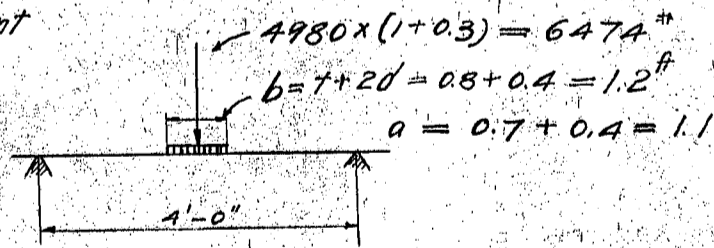 nt
4980 x (1+0.3) = 6474 #
b = t + 2d = 0.8 + 0.4 = 1.2 ft
a = 0.7 + 0.4 = 1.1
4'-0"